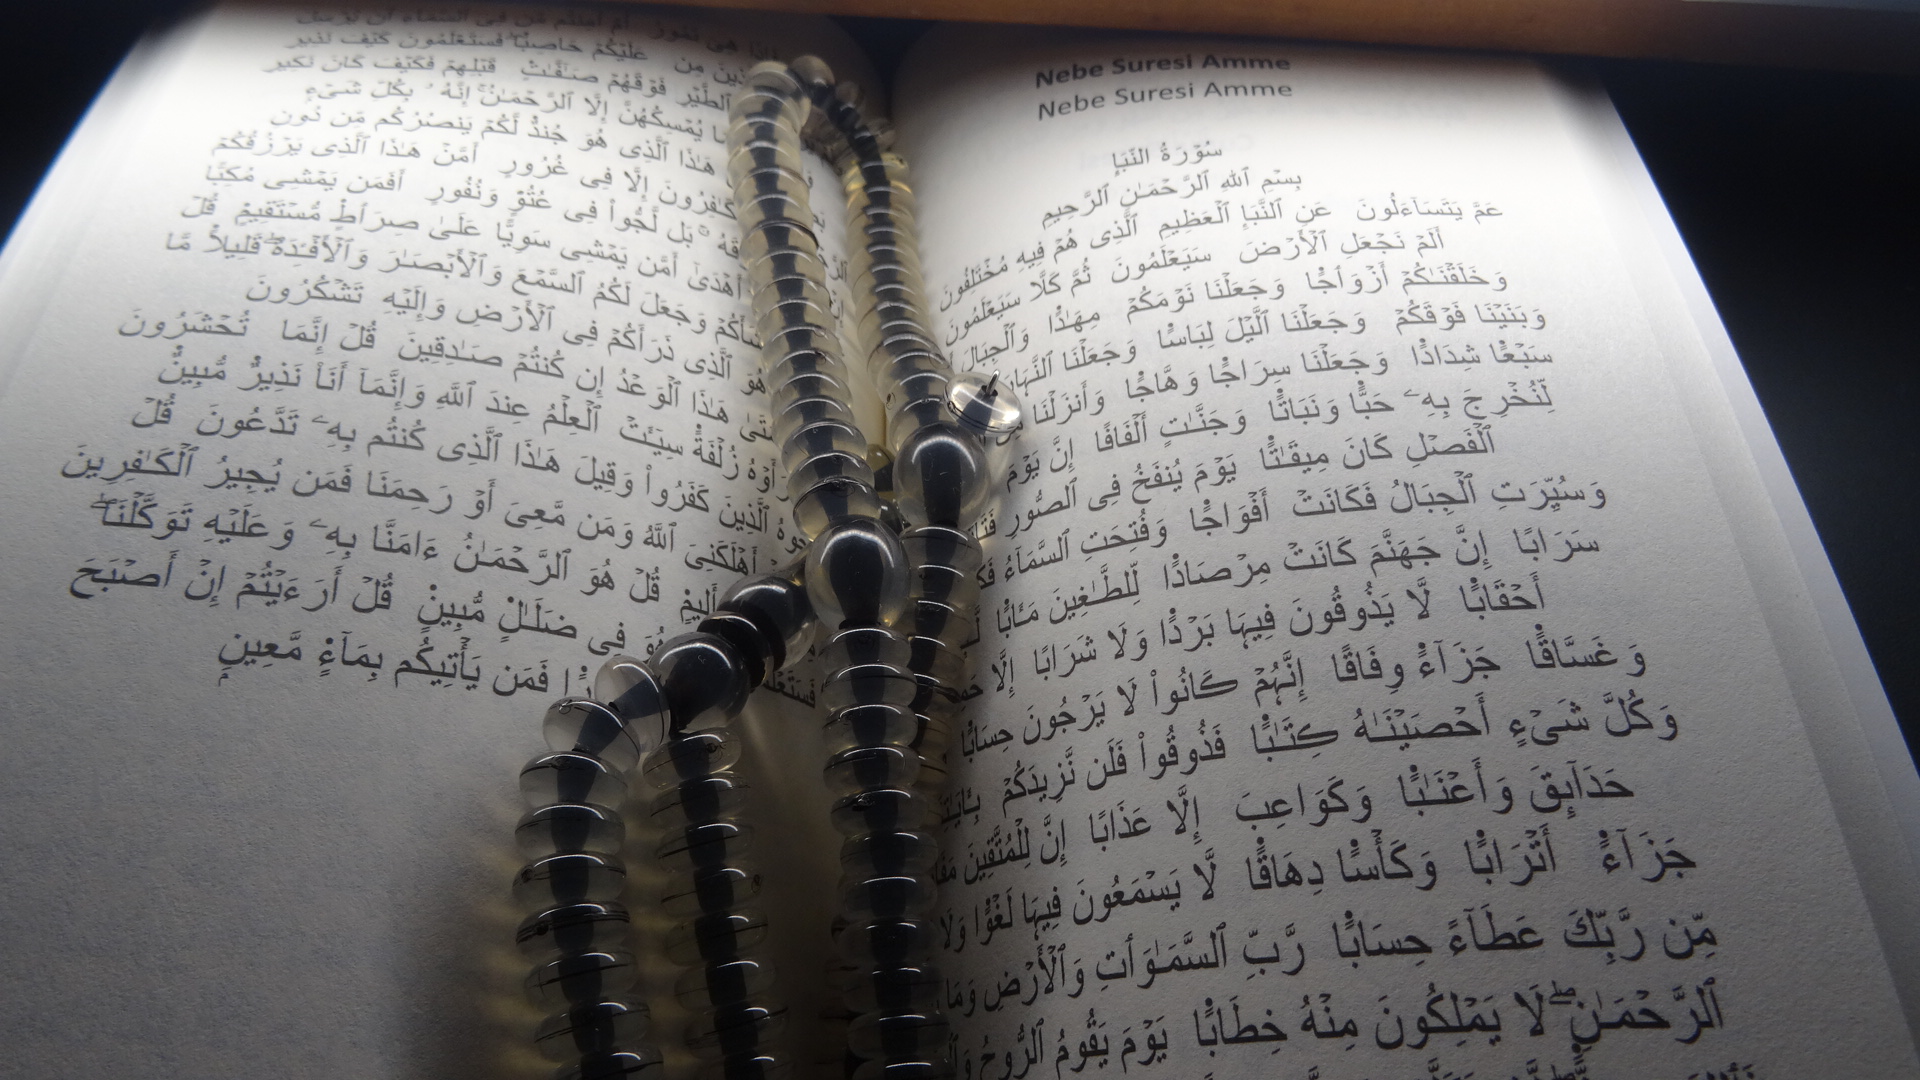 Nebe Suresi Amme
Nebe Suresi Amme
سُوْرَةُ النَّبَإِ
بِسْمِ اللهِ الرَّحْمَـٰنِ الرَّحِيمِ
عَمَّ يَتَسَآءَلُونَ عَنِ النَّبَإِ الْعَظِيمِ الَّذِى هُمْ فِيهِ مُخْتَلِفُونَ
أَلَمْ نَجْعَلِ الْأَرْضَ سَيَعْلَمُونَ ثُمَّ كَلَّا سَيَعْلَمُونَ
وَخَلَقْنَـٰكُمْ أَزْوَٲجًا وَجَعَلْنَا نَوْمَكُمْ مِهَـٰدًا وَالْجِبَالَ
وَبَنَيْنَا فَوْقَكُمْ وَجَعَلْنَا الَّيْلَ لِبَاسًا وَجَعَلْنَا النَّهَارَ
سَبْعًا شِدَادًا وَجَعَلْنَا سِرَاجًا وَهَّاجًا وَأَنزَلْنَا
لِّنُخْرِجَ بِهِۦ حَبًّا وَنَبَاتًا وَجَنَّـٰتٍ أَلْفَافًا إِنَّ يَوْمَ
الْفَصْلِ كَانَ مِيقَـٰتًا يَوْمَ يُنفَخُ فِى الصُّورِ
وَسُيِّرَتِ الْجِبَالُ فَكَانَتْ أَفْوَاجًا وَفُتِحَتِ السَّمَآءُ
سَرَابًا إِنَّ جَهَنَّمَ كَانَتْ مِرْصَادًا لِّلطَّـٰغِينَ مَـَٔابًا
أَحْقَابًا لَّا يَذُوقُونَ فِيهَا بَرْدًا وَلَا شَرَابًا إِلَّا
وَغَسَّاقًا جَزَآءً وِفَاقًا إِنَّهُمْ كَانُوا۟ لَا يَرْجُونَ حِسَابًا
وَكُلَّ شَىْءٍ أَحْصَيْنَـٰهُ كِتَـٰبًا فَذُوقُوا۟ فَلَن نَّزِيدَكُمْ
حَدَآئِقَ وَأَعْنَـٰبًا وَكَوَاعِبَ إِلَّا عَذَابًا إِنَّ لِلْمُتَّقِينَ
جَزَآءً أَتْرَابًا وَكَأْسًا دِهَاقًا لَّا يَسْمَعُونَ فِيهَا لَغْوًا وَلَا
مِّن رَّبِّكَ عَطَآءً حِسَابًا رَّبِّ السَّمَـٰوَٲتِ وَالْأَرْضِ وَمَا
الرَّحْمَـٰنِ ۖ لَا يَمْلِكُونَ مِنْهُ خِطَابًا يَوْمَ يَقُومُ الرُّوحُ
عَلَيْكُمْ حَاصِبًا ۖ فَسَتَعْلَمُونَ كَيْفَ نَذِيرِ
الطَّيْرِ فَوْقَهُمْ صَـٰٓفَّـٰتٍ قَبْلِهِمْ فَكَيْفَ كَانَ نَكِيرِ
يُمْسِكُهُنَّ إِلَّا الرَّحْمَـٰنُ ۚ إِنَّهُ بِكُلِّ شَىْءٍ
هَـٰذَا الَّذِى هُوَ جُندٌ لَّكُمْ يَنصُرُكُم مِّن دُونِ
إِلَّا فِى غُرُورٍ أَمَّنْ هَـٰذَا الَّذِى يَرْزُقُكُمْ
بَل لَّجُّوا۟ فِى عُتُوٍّ وَنُفُورٍ أَفَمَن يَمْشِى مُكِبًّا
أَهْدَىٰٓ أَمَّن يَمْشِى سَوِيًّا عَلَىٰ صِرَٲطٍ مُّسْتَقِيمٍ قُلْ
وَجَعَلَ لَكُمُ السَّمْعَ وَالْأَبْصَـٰرَ وَالْأَفْـِٔدَةَ ۖ قَلِيلاً مَّا
الَّذِى ذَرَأَكُمْ فِى الْأَرْضِ وَإِلَيْهِ تَشْكُرُونَ
هَـٰذَا الْوَعْدُ إِن كُنتُمْ صَـٰدِقِينَ قُلْ إِنَّمَا تُحْشَرُونَ
زُلْفَةً سِيٓـَٔتْ الْعِلْمُ عِندَ اللَّهِ وَإِنَّمَآ أَنَا۟ نَذِيرٌ مُّبِينٌ
الَّذِينَ كَفَرُوا۟ وَقِيلَ هَـٰذَا الَّذِى كُنتُم بِهِۦ تَدَّعُونَ قُلْ
أَهْلَكَنِىَ اللَّهُ وَمَن مَّعِىَ أَوْ رَحِمَنَا فَمَن يُجِيرُ الْكَـٰفِرِينَ
أَلِيمٍ قُلْ هُوَ الرَّحْمَـٰنُ ءَامَنَّا بِهِۦ وَعَلَيْهِ تَوَكَّلْنَا ۖ
هُوَ فِى ضَلَـٰلٍ مُّبِينٍ قُلْ أَرَءَيْتُمْ إِنْ أَصْبَحَ
فَمَن يَأْتِيكُم بِمَآءٍ مَّعِينٍ